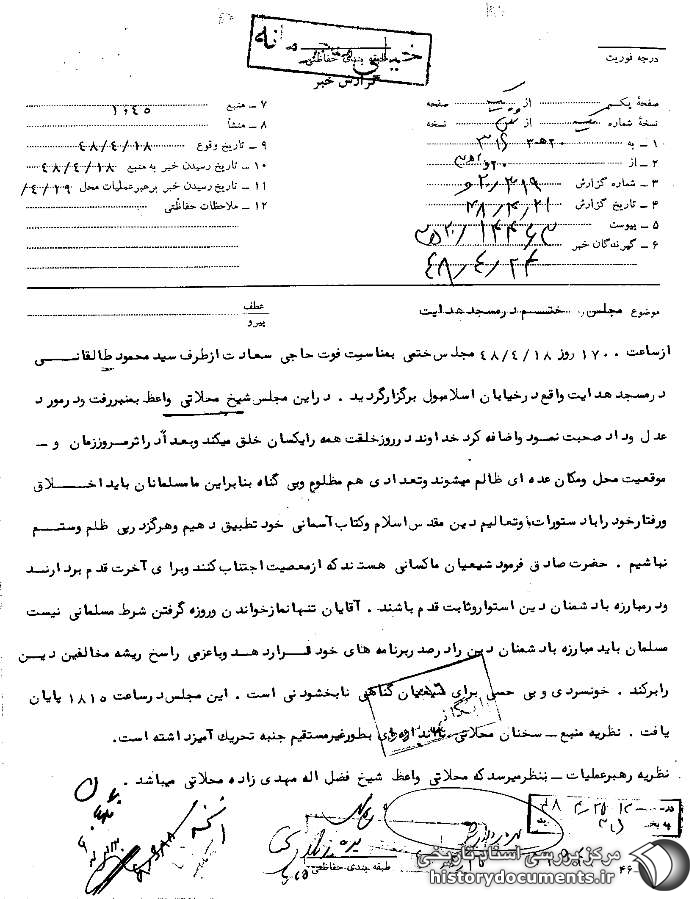 خیلی محرمانه
طبقه بندی حفاظتی
درجه فوریت
گزارش خبر
صفحهٔ یکم از یک صفحه
نسخهٔ شماره یک از نسخه
۱ ـ به ۳۱۶
۲ ـ از ۲۰ ه‍ ۳
۳ ـ شماره گزارش
۴ ـ تاریخ گزارش ۴۸/۴/۲۱
۵ ـ پیوست
۶ ـ گیرندگان خبر
۴۸/۴/۲۴
۷ ـ منبع ۱۰۴۵
۸ ـ منشأ
۹ ـ تاریخ وقوع ۴۸/۴/۱۸
۱۰ ـ تاریخ رسیدن خبر به منبع ۴۸/۴/۱۸
۱۱ ـ تاریخ رسیدن خبر برهبرعملیات محل ۴/۱۹/
۱۲ ـ ملاحظات حفاظتی
موضوع مجلس ختم در مسجد هدایت
عطف
پیرو
از ساعت ۱۷۰۰ روز ۴۸/۴/۱۸ مجلس ختمی بمناسبت فوت حاجی سعادت ازطرف سید محمود طالقانی
در مسجد هدایت واقع در خیابان اسلامبول برگزار گردید . در این مجلس شیخ محلاتی واعظ بمنبر رفت و در مورد
عدل وداد صحبت نمود و اضافه کرد خداوند در روز خلقت همه را یکسان خلق میکند و بعداً در اثر مرور زمان و ـ
موقعیت محل و مکان عده ای ظالم میشوند و تعدادی هم مظلوم و بی گناه بنابراین ما مسلمانان باید اخلاق
و رفتار خود را با دستورات و تعالیم دین مقدس اسلام و کتاب آسمانی خود تطبیق دهیم و هرگز در پی ظلم و ستم
نباشیم . حضرت صادق فرمود شیعیان ما کسانی هستند که از معصیت اجتناب کنند و برای آخرت قدم بردارند
و در مبارزه با دشمنان دین استوار و ثابت قدم باشند . آقایان تنها نماز خواندن و روزه گرفتن شرط مسلمانی نیست
مسلمان باید مبارزه با دشمنان دین را در صدر برنامه های خود قرار دهد و با عزمی راسخ ریشه مخالفین دین
را برکند . خونسردی و بی حسی برای شیعیان گناهی نابخشودنی است . این مجلس در ساعت ۱۸۱۵ پایان
یافت . نظریه منبع ـ سخنان محلاتی تا اندازه ای بطور غیر مستقیم جنبه تحریک آمیز داشته است.
نظریه رهبر عملیات ـ بنظر میرسد که محلاتی واعظ شیخ فضل اله مهدی زاده محلاتی میباشد .
به بخش ۳۱۶
طبقه بندی حفاظتی
۴۶
مرکز بررسی اسناد تاریخی
historydocuments.ir